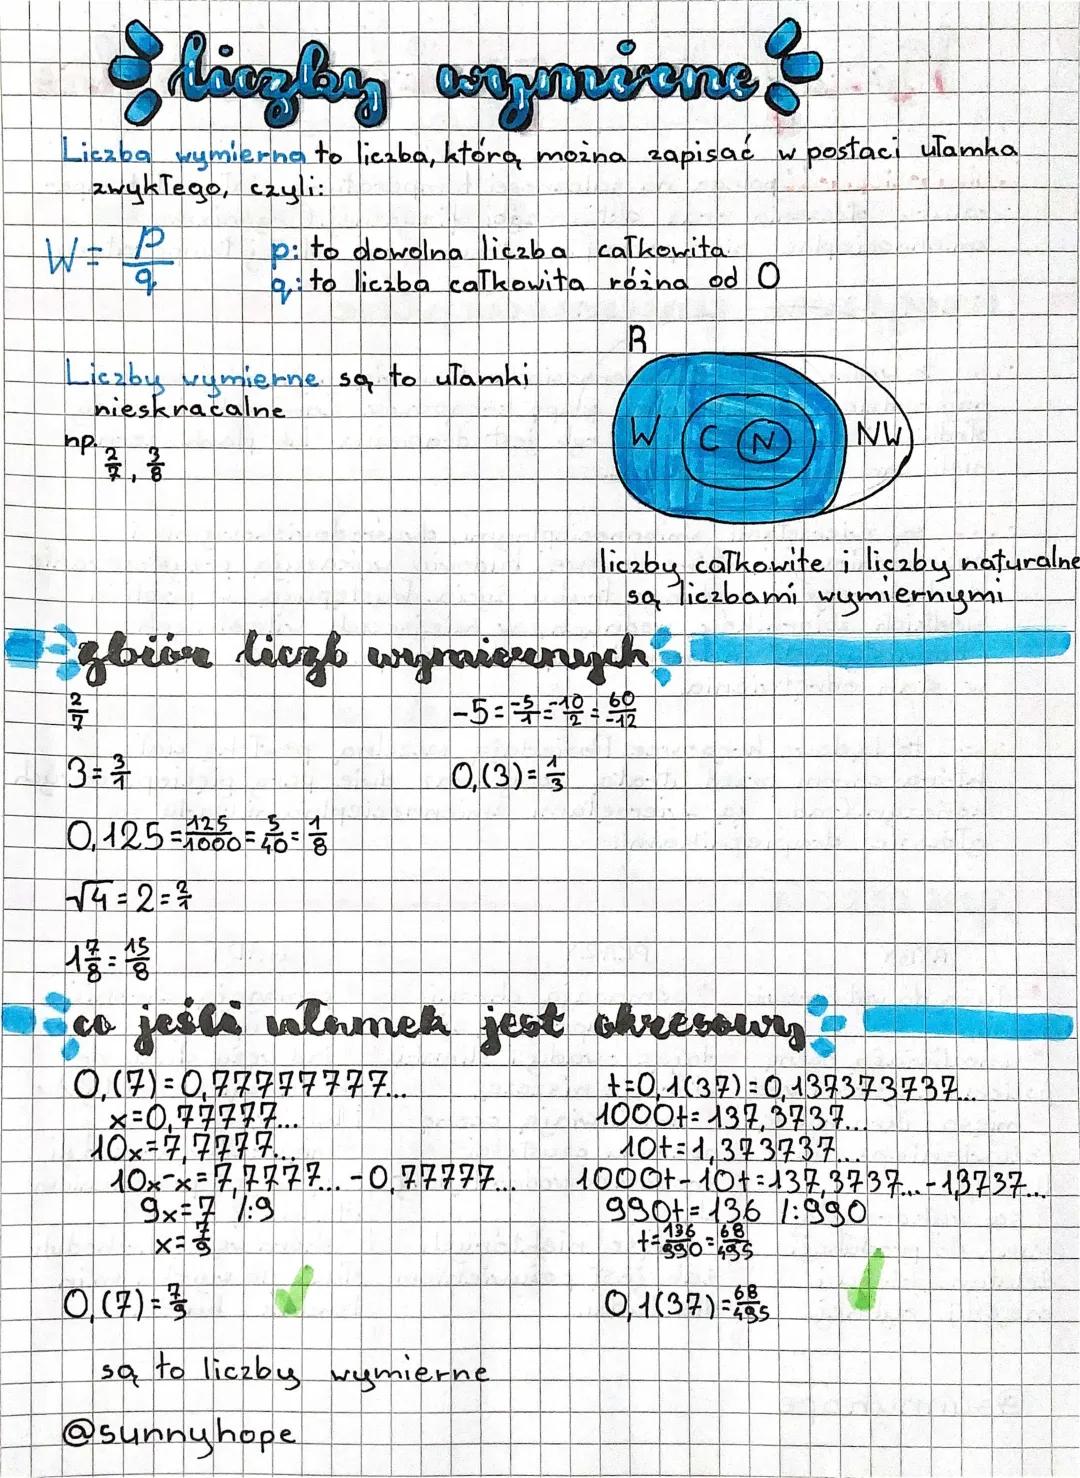 liczby wymierne
Liczba wymierna to liczba, którą można zapisać w postaci ułamka
zwykłego, czyli:
W = p/q
p: to dowolna liczba całkowita
q: to liczba całkowita różna od 0
Liczby wymierne są to ułamki
nieskracalne
np. 2/7, 3/8
R
W C N NW
liczby całkowite i liczby naturalne
są liczbami wymiernymi
zbiór liczb wymiernych
2/7
-5 = -5/1 = -10/2 = 60/-12
3 = 3/1
0,(3) = 1/3
0,125 = 125/1000 = 5/40 = 1/8
√4 = 2 = 2/1
1 7/8 = 15/8
co jeśli ułamek jest okresowy
0,(7) = 0,77777777...
x = 0,77777...
10x = 7,7777...
10x-x = 7,7777... - 0,77777...
9x = 7 /:9
x = 7/9
0,(7) = 7/9
t = 0,1(37) = 0,137373737...
1000t = 137,3737...
10t = 1,373737...
1000t - 10t = 137,3737... - 1,3737...
990t = 136 /:990
t = 136/990 = 68/495
0,1(37) = 68/495
są to liczby wymierne
@sunnyhope